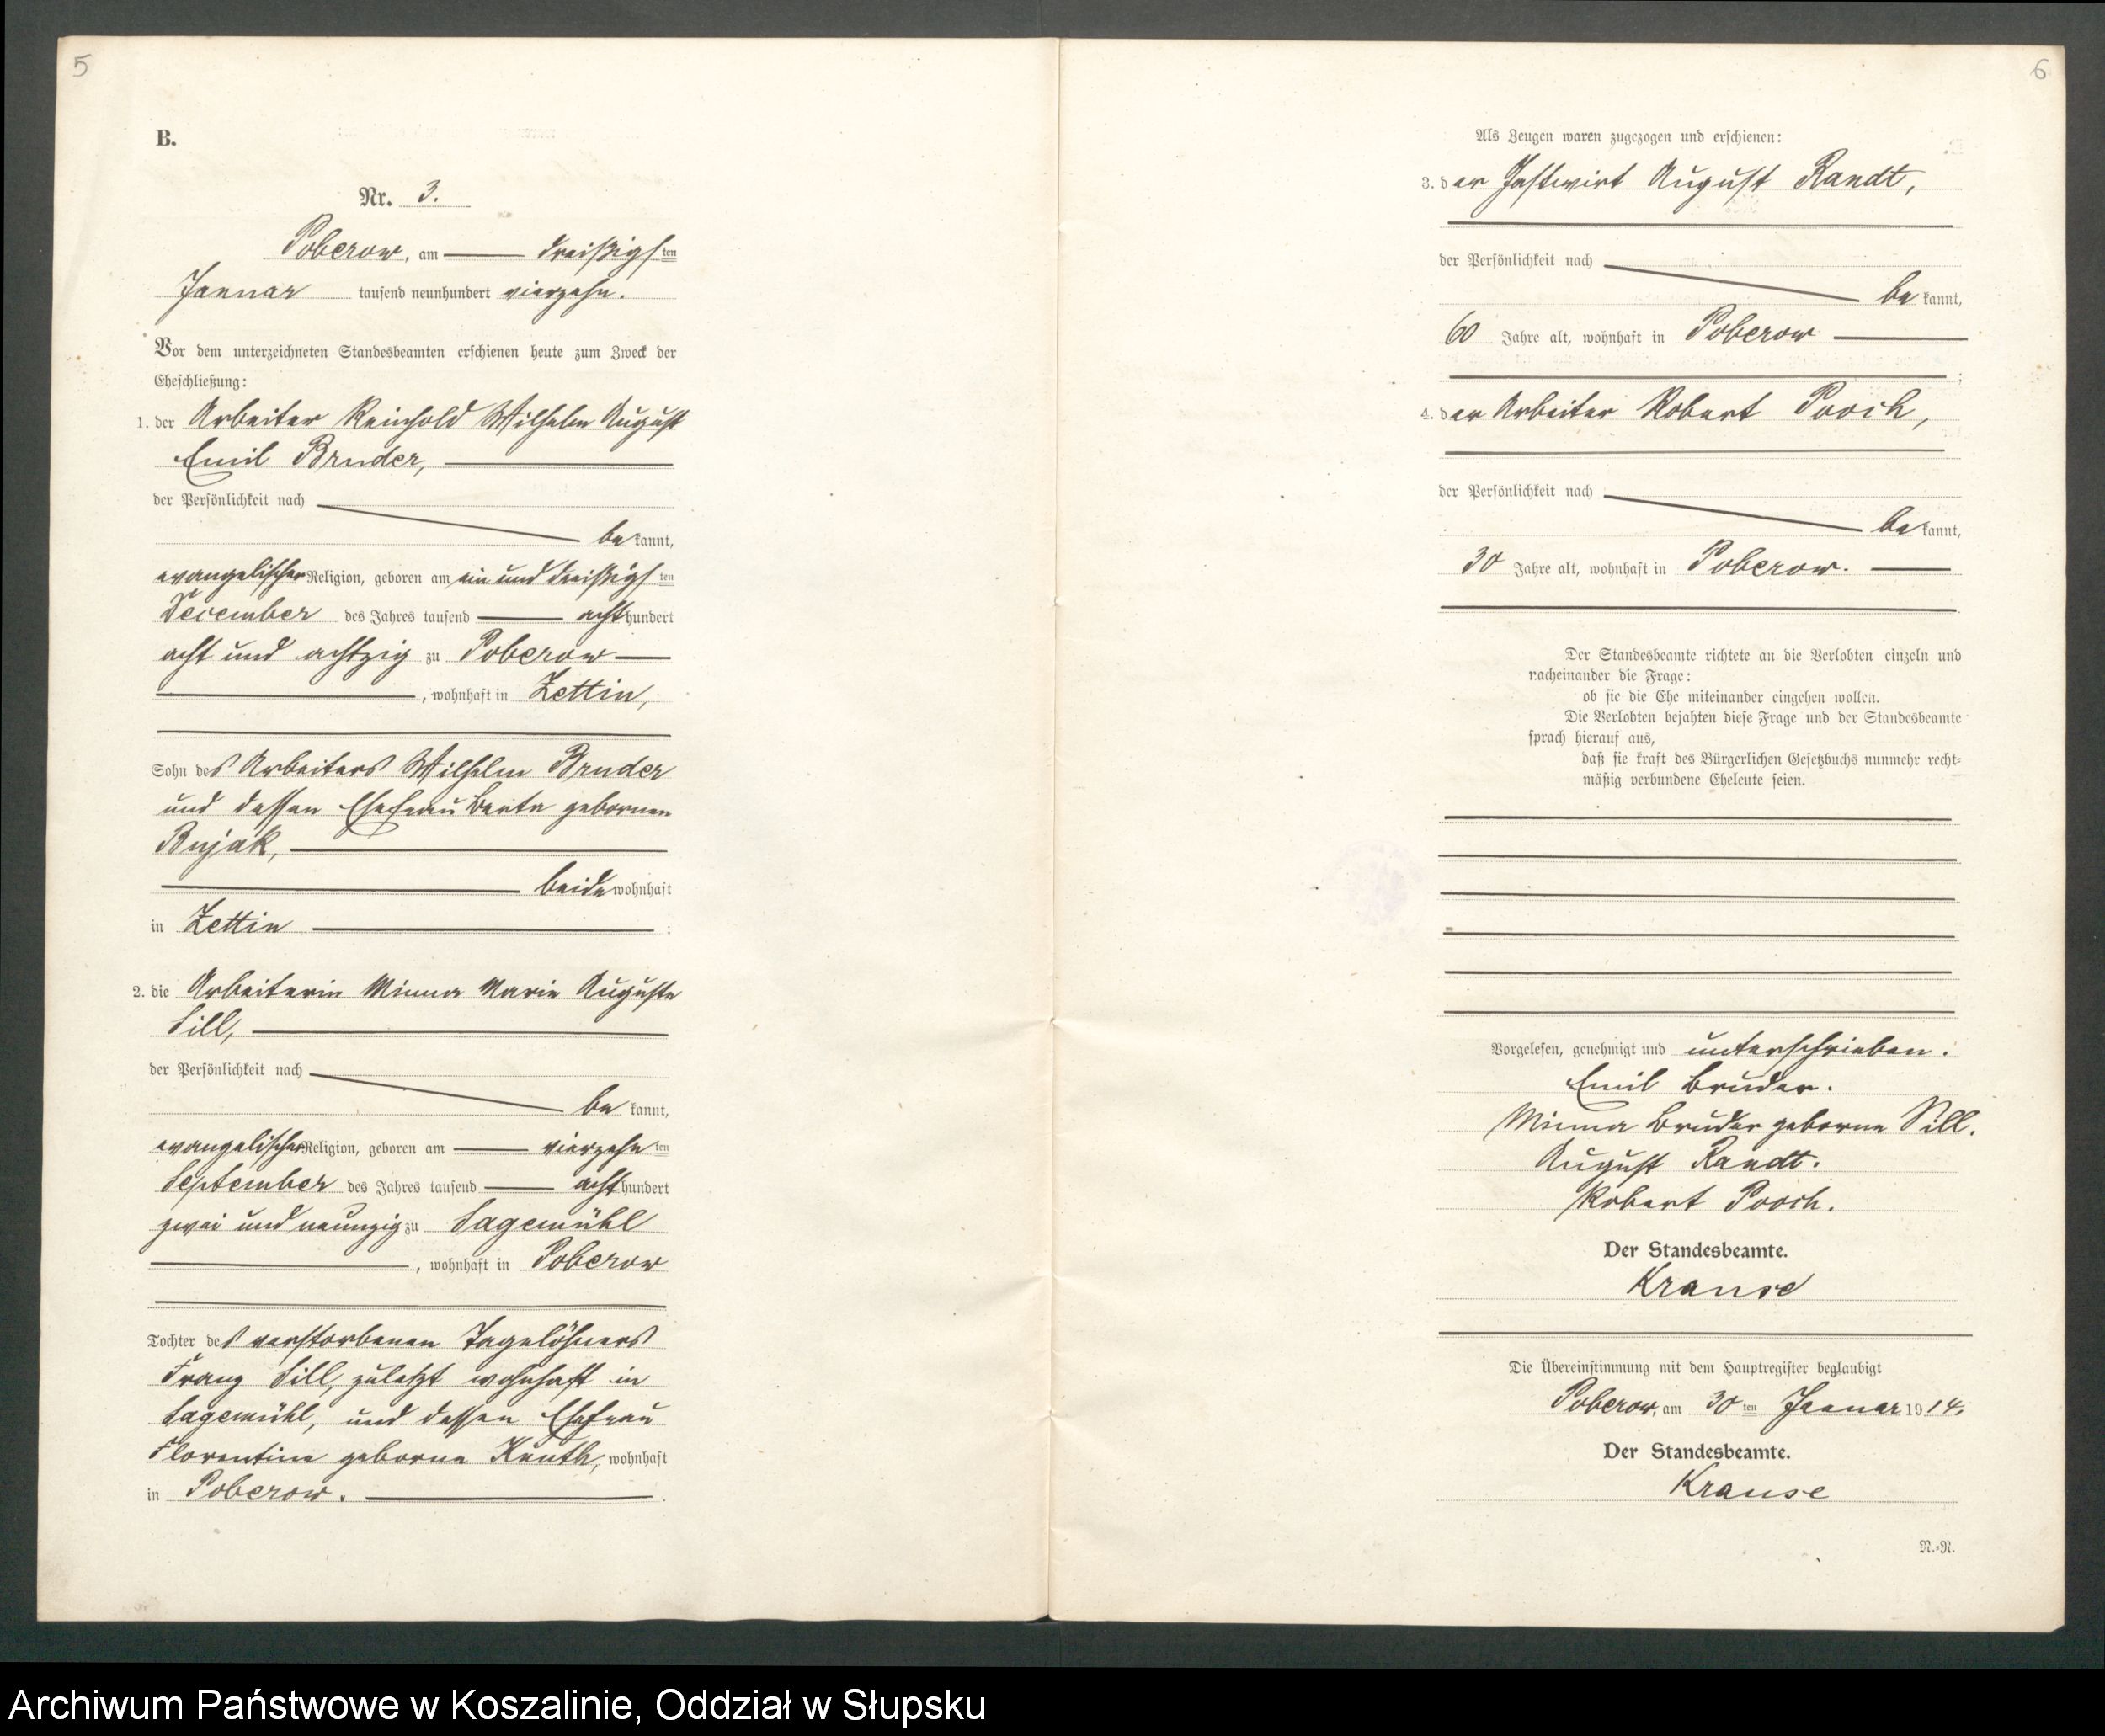 5
B.
Nr. 3.
Poberow, am dreißigsten
Januar tausend neunhundert vierzehn.
Vor dem unterzeichneten Standesbeamten erschienen heute zum Zweck der
Eheschließung:
1. der Arbeiter Reinhold Wilhelm August
Emil Bruder,
der Persönlichkeit nach
bekannt,
evangelischer Religion, geboren am ein und dreißigsten
December des Jahres tausend achthundert
acht und achtzig zu Poberow
, wohnhaft in Zettin,
Sohn des Arbeiters Wilhelm Bruder
und dessen Ehefrau Berta gebornen
Bujak,
beide wohnhaft
in Zettin :
2. die Arbeiterin Minna Marie Auguste
Sill,
der Persönlichkeit nach
bekannt,
evangelischer Religion, geboren am vierzehnten
September des Jahres tausend achthundert
zwei und neunzig zu Sagemühl
, wohnhaft in Poberow
Tochter des verstorbenen Tagelöhners
Franz Sill, zuletzt wohnhaft in
Sagemühl, und dessen Ehefrau
Florentine geborne wohnhaft
in Poberow.
6
Als Zeugen waren zugezogen und erschienen:
3. der Gastwirt August Randt,
der Persönlichkeit nach
bekannt,
60 Jahre alt, wohnhaft in Poberow
;
4. der Arbeiter Robert Pooch,
der Persönlichkeit nach
bekannt,
30 Jahre alt, wohnhaft in Poberow.
Der Standesbeamte richtete an die Verlobten einzeln und
nacheinander die Frage:
ob sie die Ehe miteinander eingehen wollen.
Die Verlobten bejahten diese Frage und der Standesbeamte
sprach hierauf aus,
daß sie kraft des Bürgerlichen Gesetzbuchs nunmehr recht-
mäßig verbundene Eheleute seien.
Vorgelesen, genehmigt und unterschrieben.
Emil Bruder.
Minna Bruder geborne Sill.
August Randt.
Robert Pooch.
Der Standesbeamte.
Krause
Die Übereinstimmung mit dem Hauptregister beglaubigt
Poberow, am 30ten Januar 1914.
Der Standesbeamte.
Krause
N.-R.
Archiwum Państwowe w Koszalinie, Oddział w Słupsku